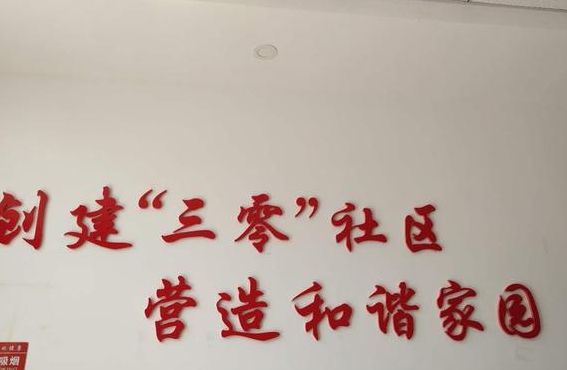 创建“三零”社区
营造和谐家园
吸烟